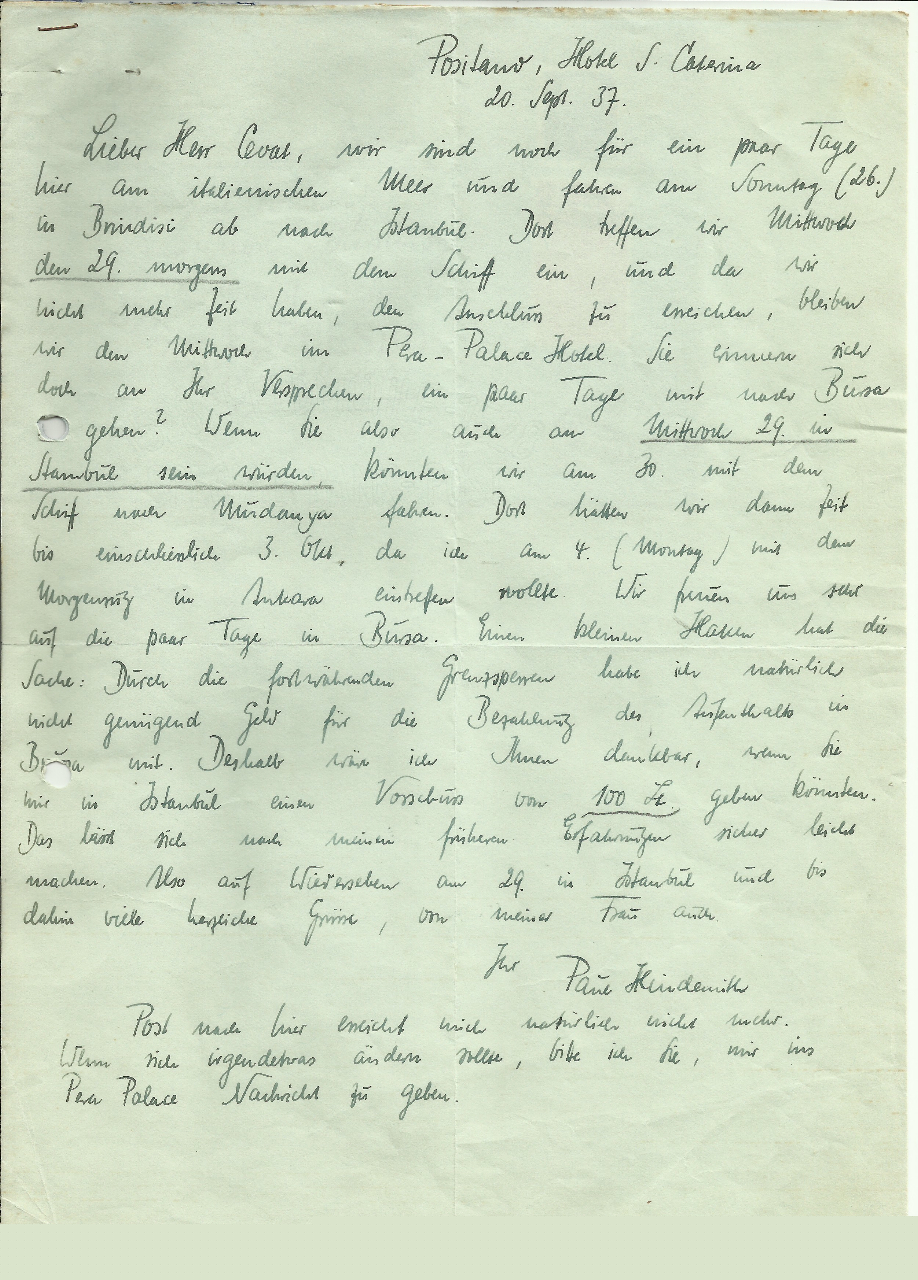 Positano, Hotel S. Caterina
20. Sept. 37.
Lieber Herr Cevat, wir sind noch für ein paar Tage
hier am italienischen Meer und fahren am Sonntag (26.)
in Brindisi ab nach Istanbul. Dort treffen wir Mittwoch
den 29. morgens mit dem Schiff ein, und da wir
nicht mehr Zeit haben, den Anschluss zu erreichen, bleiben
wir den Mittwoch im Pera-Palace Hotel. Sie erinnern sich
doch an Ihr Versprechen, ein paar Tage mit nach Bursa
zu gehen? Wenn Sie also auch am Mittwoch 29. in
Stambul sein würden, könnten wir am 30. mit dem
Schiff nach Mudanya fahren. Dort hätten wir dann Zeit
bis einschliesslich 3. Okt., da ich am 4. (Montag) mit dem
Morgenzug in Ankara eintreffen wollte. Wir freuen uns sehr
auf die paar Tage in Bursa. Einen kleinen Haken hat die
Sache: Durch die fortwährenden Grenzsperren habe ich natürlich
nicht genügend Geld für die Bezahlung des Aufenthalts in
Bursa mit. Deshalb wäre ich Ihnen dankbar, wenn Sie
mir in Istanbul einen Vorschuss von 100 Lt. geben könnten.
Das lässt sich nach meinen früheren Erfahrungen sicher leicht
machen. Also auf Wiedersehen am 29. in Istanbul und bis
dahin viele herzliche Grüsse, von meiner Frau auch.
Ihr Paul Hindemith
Post nach hier erreicht mich natürlich nicht mehr.
Wenn sich irgendetwas ändern sollte, bitte ich Sie, mir ins
Pera Palace Nachricht zu geben.